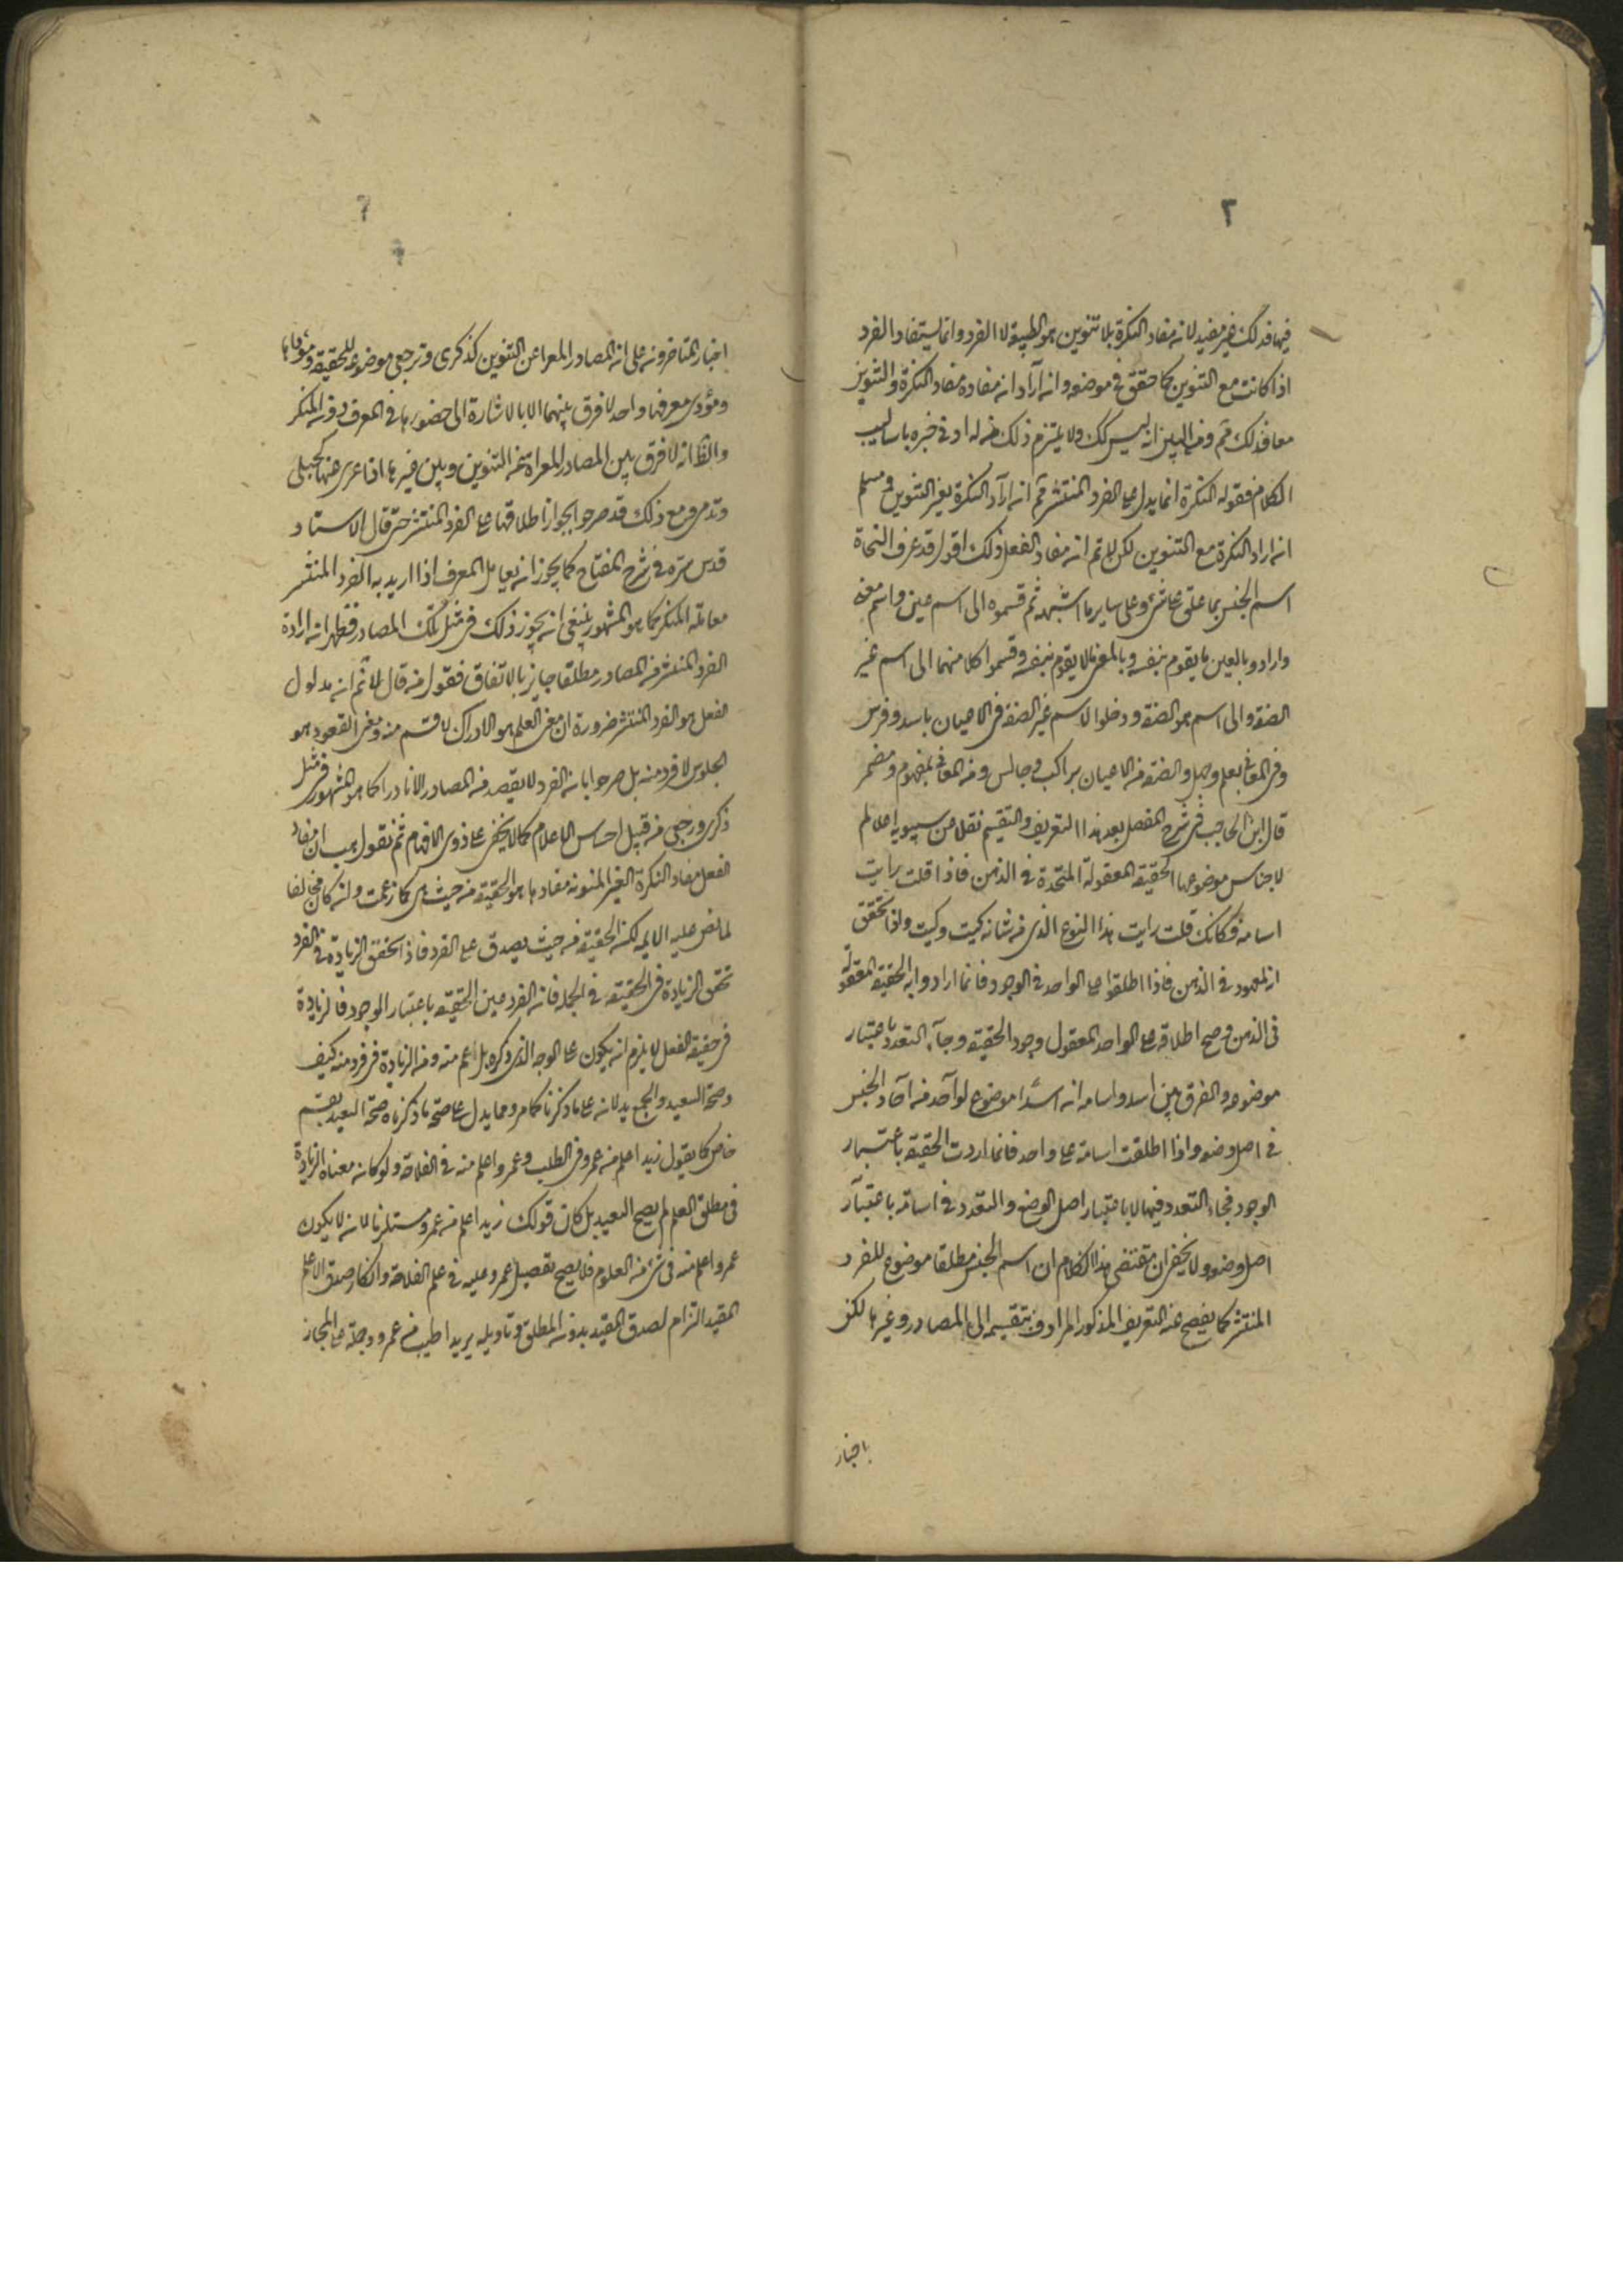 ٢
فيها فذلك غير مفيد لان مفاد النكرة بلا تنوين هو الطبيعة لا الفرد وانما يستفاد الفرد
اذا كانت مع التنوين كما حقق في موضعه وان اراد ان مفاده مفاد النكرة والتنوين
معا فذلك ثم ومن البين انه ليس كك ولا يلتزم ذلك من له ادنى خبره باساليب
الكلام فقوله النكرة انما يدل على الفرد المنتشر ثم ان اراد النكرة بغير التنوين ومسلم
ان اراد النكرة مع التنوين لكن لا تم ان مفاد الفعل ذلك اقول قد عرف النحاة
اسم الجنس بما علق على شئ وعلى ساير ما اشبهه ثم قسموه الى اسم عين واسم معنى
وارادوا بالعين ما يقوم بنفسه وبالمعنى ما لا يقوم بنفسه وقسموا كلا منهما الى اسم غير
الصفة والى اسم هو الصفة ودخلوا الاسم غير الصفة في الاعيان باسد وفرس
وفي المعاني بعلم وجهل والصفة من الاعيان براكب وجالس ومن المعاني بمفهوم ومضمر
قال ابن الحاجب في شرح المفصل بعد هذا التعريف والتقسيم نقلا من سيبويه اعلام
الاجناس موضوعها الحقيقة المعقولة المتحدة في الذهن فاذا قلت رايت
اسامة فكانك قلت رايت هذا النوع الذي من شانه كيت وكيت واذا تحقق
ان المعهود في الذهن فاذا اطلقوا على الواحد في الوجود فانما ارادوا به الحقيقة المعقولة
في الذهن وصح اطلاقه على الواحد المعقول وجود الحقيقة وجاء التعدد باعتبار
موضوعه والفرق بين اسد واسامه ان اسدا موضوع لواحد من آحاد الجنس
في اصل وضعه واذا اطلقت اسامة على واحد فانما اردت الحقيقة باعتبار
الوجود فجاء التعدد فيها لا باعتبار اصل الوضع والتعدد في اسامة باعتبار
اصل وضعه ولا يخفى ان مقتضى هذا الكلام ان اسم الجنس مطلقا موضوع للفرد
المنتشر كما يفصح عنه التعريف المذكور المرادف بتقسيم الى المصادر وغيرها لكن
اختار
اختار المتاخرون على ان المصادر المعرا عن التنوين كذكرى ورجعى موضوعه للحقيقة ومؤداها
ومؤدى معرفها واحد لا فرق بينهما الا بالاشارة الى حضورها في المعرف دون المنكر
والظ انه لا فرق بين المصادر المعراة عن التنوين وبين غيرها اذا عرى عنها كحبلى
وقد مر ومع ذلك قد صرحوا بجواز اطلاقها على الفرد المنتشر حتى قال الاستاد
قدس سره في شرح المفتاح كما يجوز ان يعامل المعرف اذا اريد به الفرد المنتشر
معاملة المنكر كما هو المشهور ينبغي ان يجوز ذلك في مثل تلك المصادر فظهر ان ارادة
الفرد المنتشر من المصادر مطلقا جايز بالاتفاق فقول من قال لا ثم ان مدلول
الفعل هو الفرد المنتشر ضرورة ان معنى العلم هو الادراك لا قسم منه ومعنى القعود هو
الجلوس لا فرد منه بل صرحوا بان الفرد لا يقصد من المصادر الا نادرا كما هو المشهور في مثل
ذكرى ورجعى من قبيل احساس الاعلام كما لا يخفى على ذوى الافهام ثم نقول هب ان مفاد
الفعل مفاد النكرة الغير المنونه مفادها هو الحقيقة من حيث هي كما زعمت وان كان مخالفا
لما نص عليه الائمه لكن الحقيقة من حيث يصدق على الفرد فاذا تحقق الزيادة في الفرد
تحقق الزيادة في الحقيقة في الجملة فان الفرد عين الحقيقة باعتبار الوجود فالزيادة
في حقيقة الفعل لا يلزم ان يكون على الوجه الذي ذكره بل اعم منه ومن الزيادة في فرد منه كيف
وصحة التعيد والجمع يدلان على ما ذكرنا كما مر ومما يدل على صحة ما ذكرناه صحة التعيد بقسم
خاص كما يقول زيد اعلم من عمرو في الطب وعمرو اعلم منه في الفلاحة ولو كان معناه الزيادة
في مطلق العلم لم يصح التعيد بل كان قولك زيد اعلم من عمرو مستلزما لان لا يكون
عمرو اعلم منه في شئ من العلوم فلا يصح تفضيل عمرو عليه في علم الفلاحة وانكار صدق الاعلم
المقيد التزام لصدق المقيد بدون المطلق وتاويله يريد اطيب من عمرو وجملة على المجاز